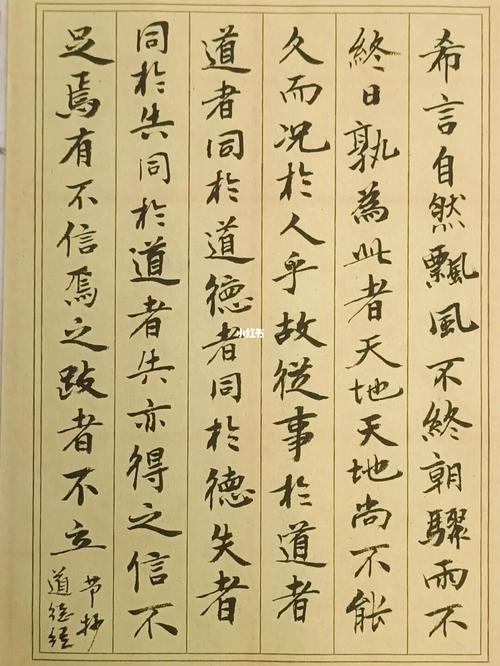 希言自然飄風不終朝驟雨不
終日孰為此者天地天地尚不能
久而况於人乎故從事於道者
道者同於道德者同於德失者
同於失同於道者失亦得之信不
足焉有不信焉之跂者不立
节抄
道德经
小红书